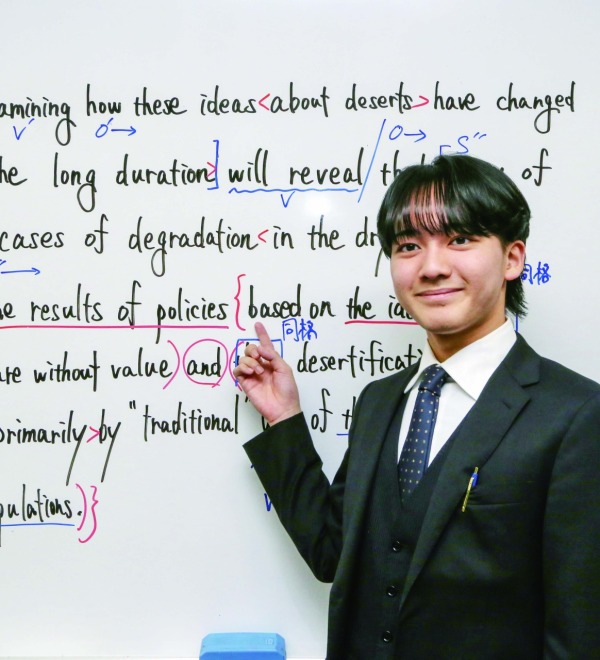 amining how these ideas <about deserts> have changed
V' O' → O → S''
he long duration> ] will reveal / th of
V
cases of degradation < in the dr
→ 同格
e results of policies { based on the
同格
are without value ) and desertificati
primarily > by "traditional" of
pulations. ) }